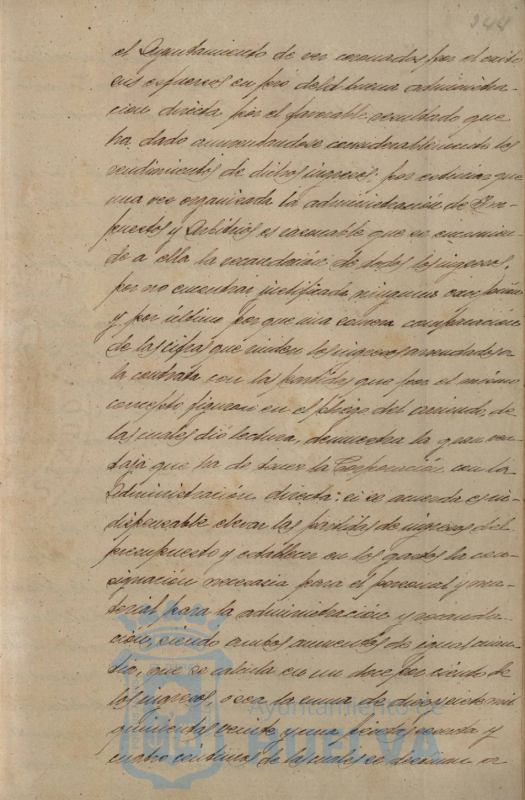 344
el Ayuntamiento de ver coronados por el exito
sus esfuerzos en pró de la buena administra-
cion directa por el favorable resultado que
ha dado aumentandose considerablemente los
rendimientos de dichos ingresos; por estimar que
una vez organizada la administración de Im-
puestos y Arbitrios es razonable que se encomien-
de a ella la recaudación de todos los ingresos,
por no encontrar justificada ninguna
y por ultimo por que una comparación
de las cifras que rinden los ingresos arrendados
la contrata con las partidas que por el mismo
concepto figuran en el pliego del arriendo, de
las cuales dió lectura, demuestra la gran ven-
taja que ha de tener la Corporación con la
administración directa: si se acuerda es in-
dispensable elevar las partidas de ingresos del
presupuesto y establecer en los gastos la con-
signación necesaria para el personal y ma-
terial para la administración y recauda-
cion, siendo ambos aumentos de igual cuan-
tia, que se calcula en un doce por ciento de
los ingresos, o sea la suma de diez y siete mil
quinientas veinte y una pesetas sesenta y
cuatro centimos de las cuales se destinan
Ayuntamiento de
HUELVA